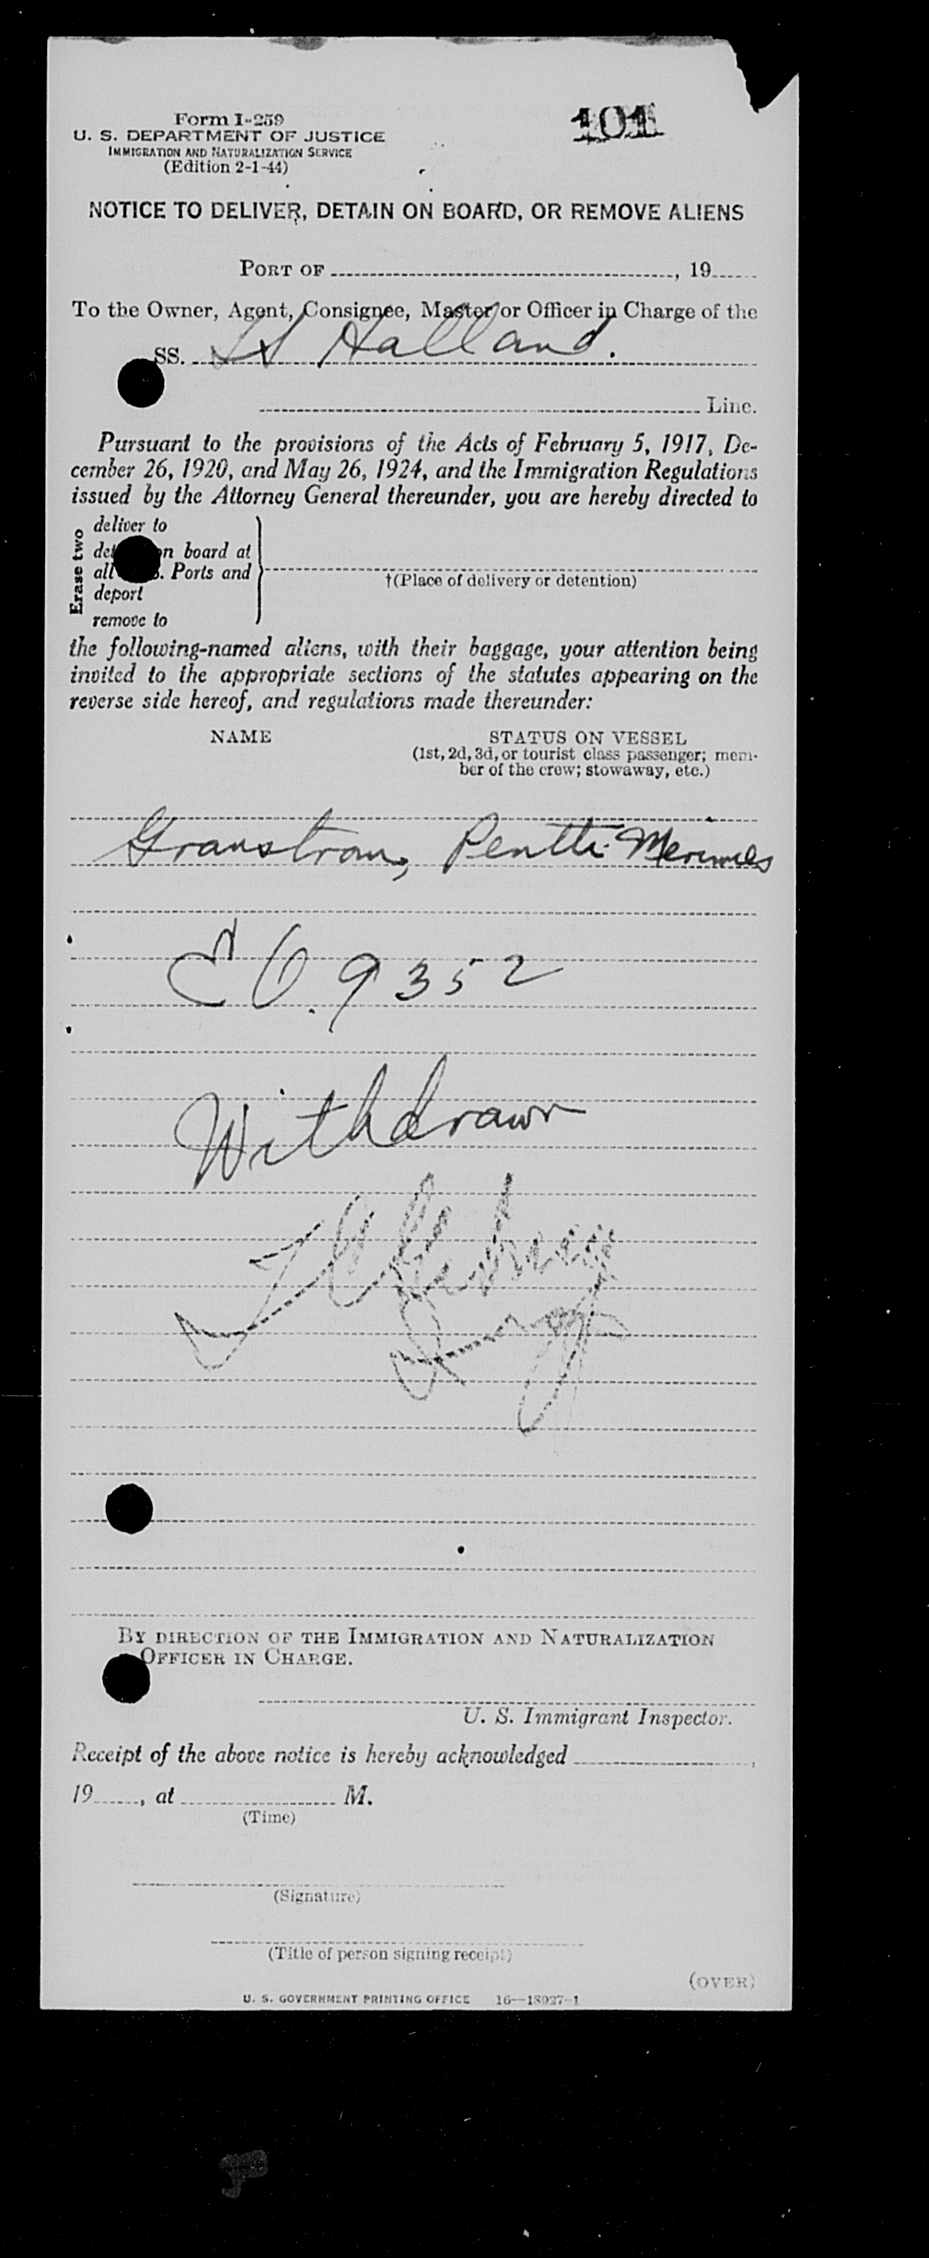 Form I-259
101
U. S. DEPARTMENT OF JUSTICE
IMMIGRATION AND NATURALIZATION SERVICE
(Edition 2-1-44)
NOTICE TO DELIVER, DETAIN ON BOARD, OR REMOVE ALIENS
PORT OF , 19
To the Owner, Agent, Consignee, Master or Officer in Charge of the
SS. Halland.
Line.
Pursuant to the provisions of the Acts of February 5, 1917, De-
cember 26, 1920, and May 26, 1924, and the Immigration Regulations
issued by the Attorney General thereunder, you are hereby directed to
Erase two
deliver to
n board at
all . Ports and
deport
remove to
†(Place of delivery or detention)
the following-named aliens, with their baggage, your attention being
invited to the appropriate sections of the statutes appearing on the
reverse side hereof, and regulations made thereunder:
NAME STATUS ON VESSEL
(1st, 2d, 3d, or tourist class passenger; mem-
ber of the crew; stowaway, etc.)
Granstrom, Pentti
EO. 9352
Withdrawn
BY DIRECTION OF THE IMMIGRATION AND NATURALIZATION
OFFICER IN CHARGE.
U. S. Immigrant Inspector.
Receipt of the above notice is hereby acknowledged ,
19 , at M.
(Time)
(Signature)
(Title of person signing receipt)
(OVER)
U. S. GOVERNMENT PRINTING OFFICE 16—18927-1